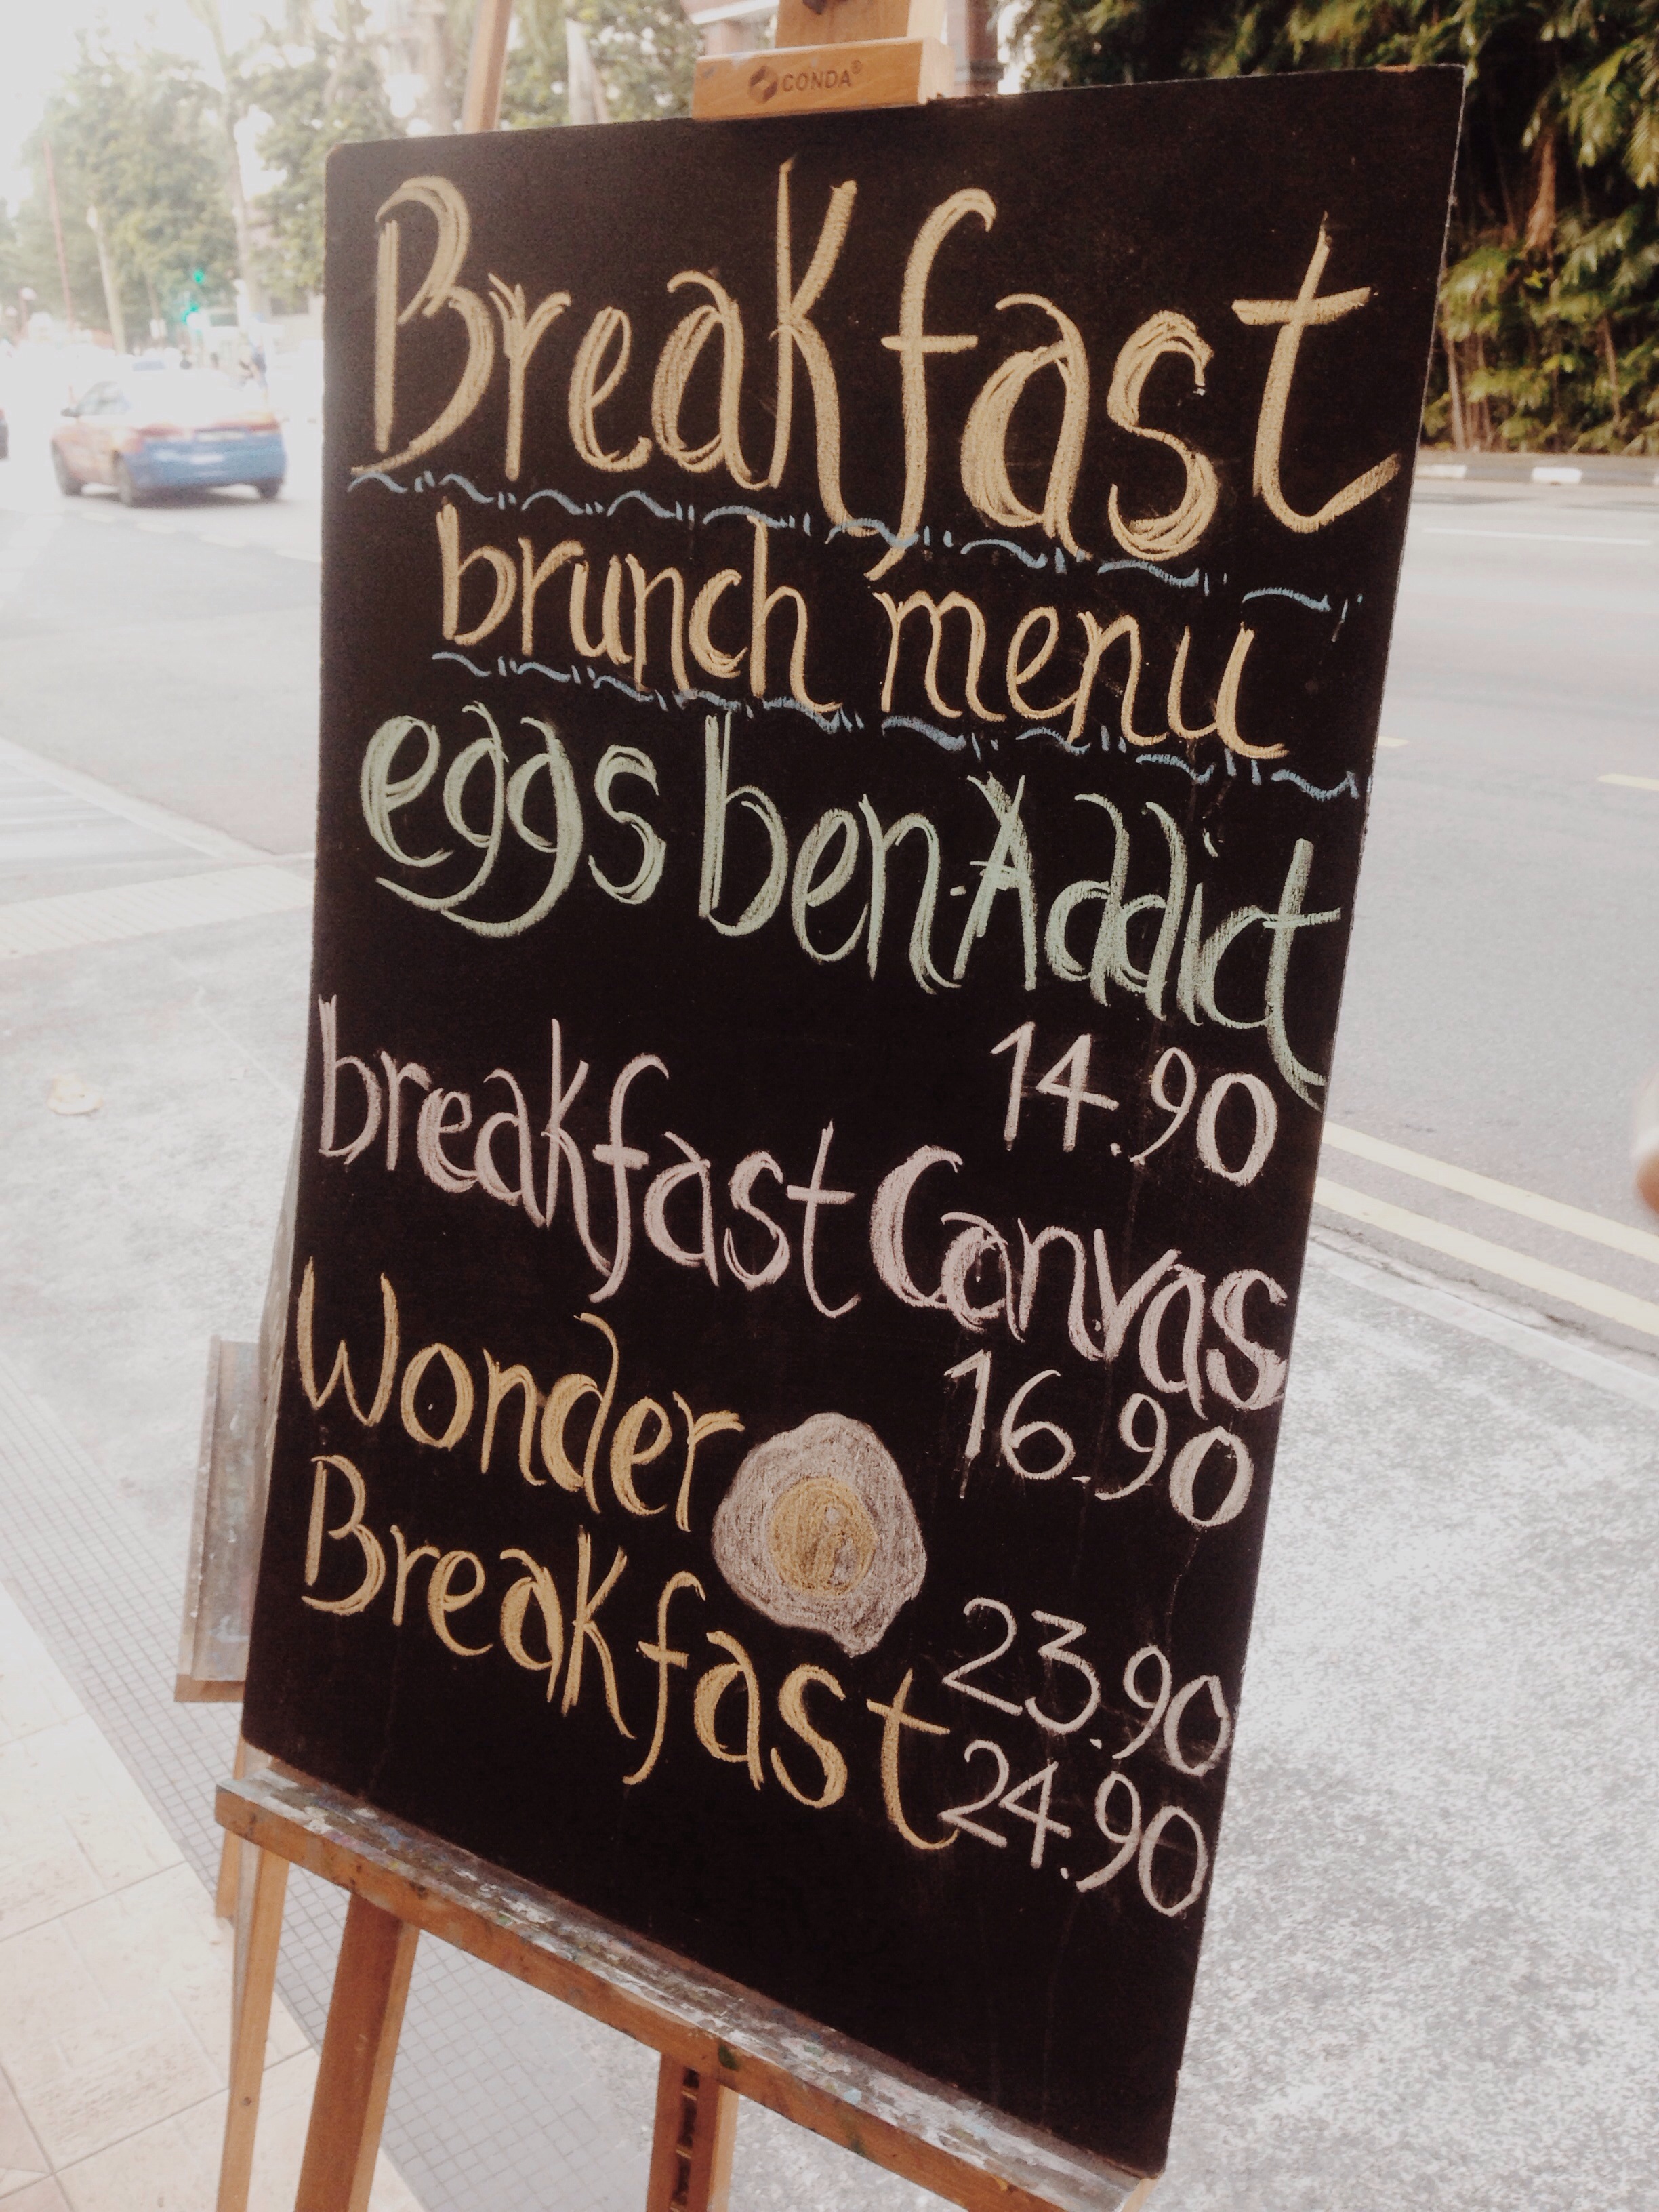 CONDA®
Breakfast
brunch menu
eggs ben-Addict
14.90
breakfast Canvas
16.90
Wonder
Breakfast
23.90
24.90